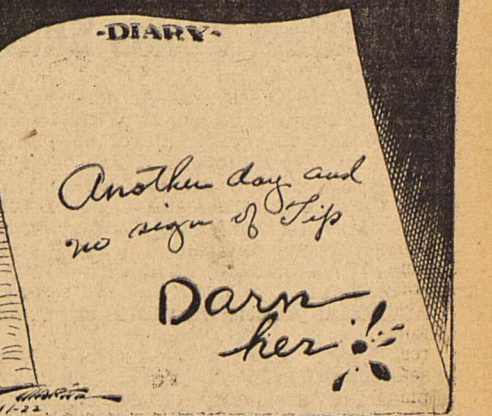 -DIARY-
Another day and
no sign of Tip
Darn
her
11-22